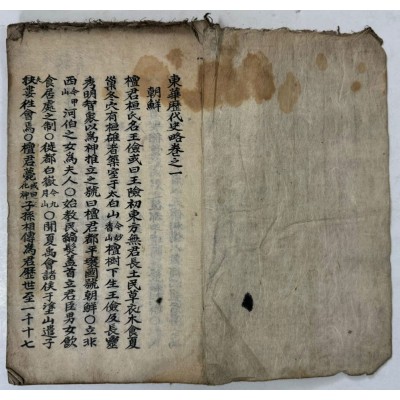 東華歷代史略卷之一
朝鮮
檀君桓氏名王儉或曰王險初東方無君長土民草衣木食夏
巢冬穴有桓雄者築室于太白山今妙香山檀樹下生王儉及長靈
秀明智象以爲神推立之號曰檀君都平壤國號朝鮮〇立非
西岬今甲山河伯之女爲夫人〇始教民編髮盖首立君臣男女飲
食居處之制〇徙都白嶽今九月山〇聞夏禹會諸侯于塗山遣子
扶婁徃會焉〇檀君薨或曰化神子孫相傳爲君歷世至一千十七